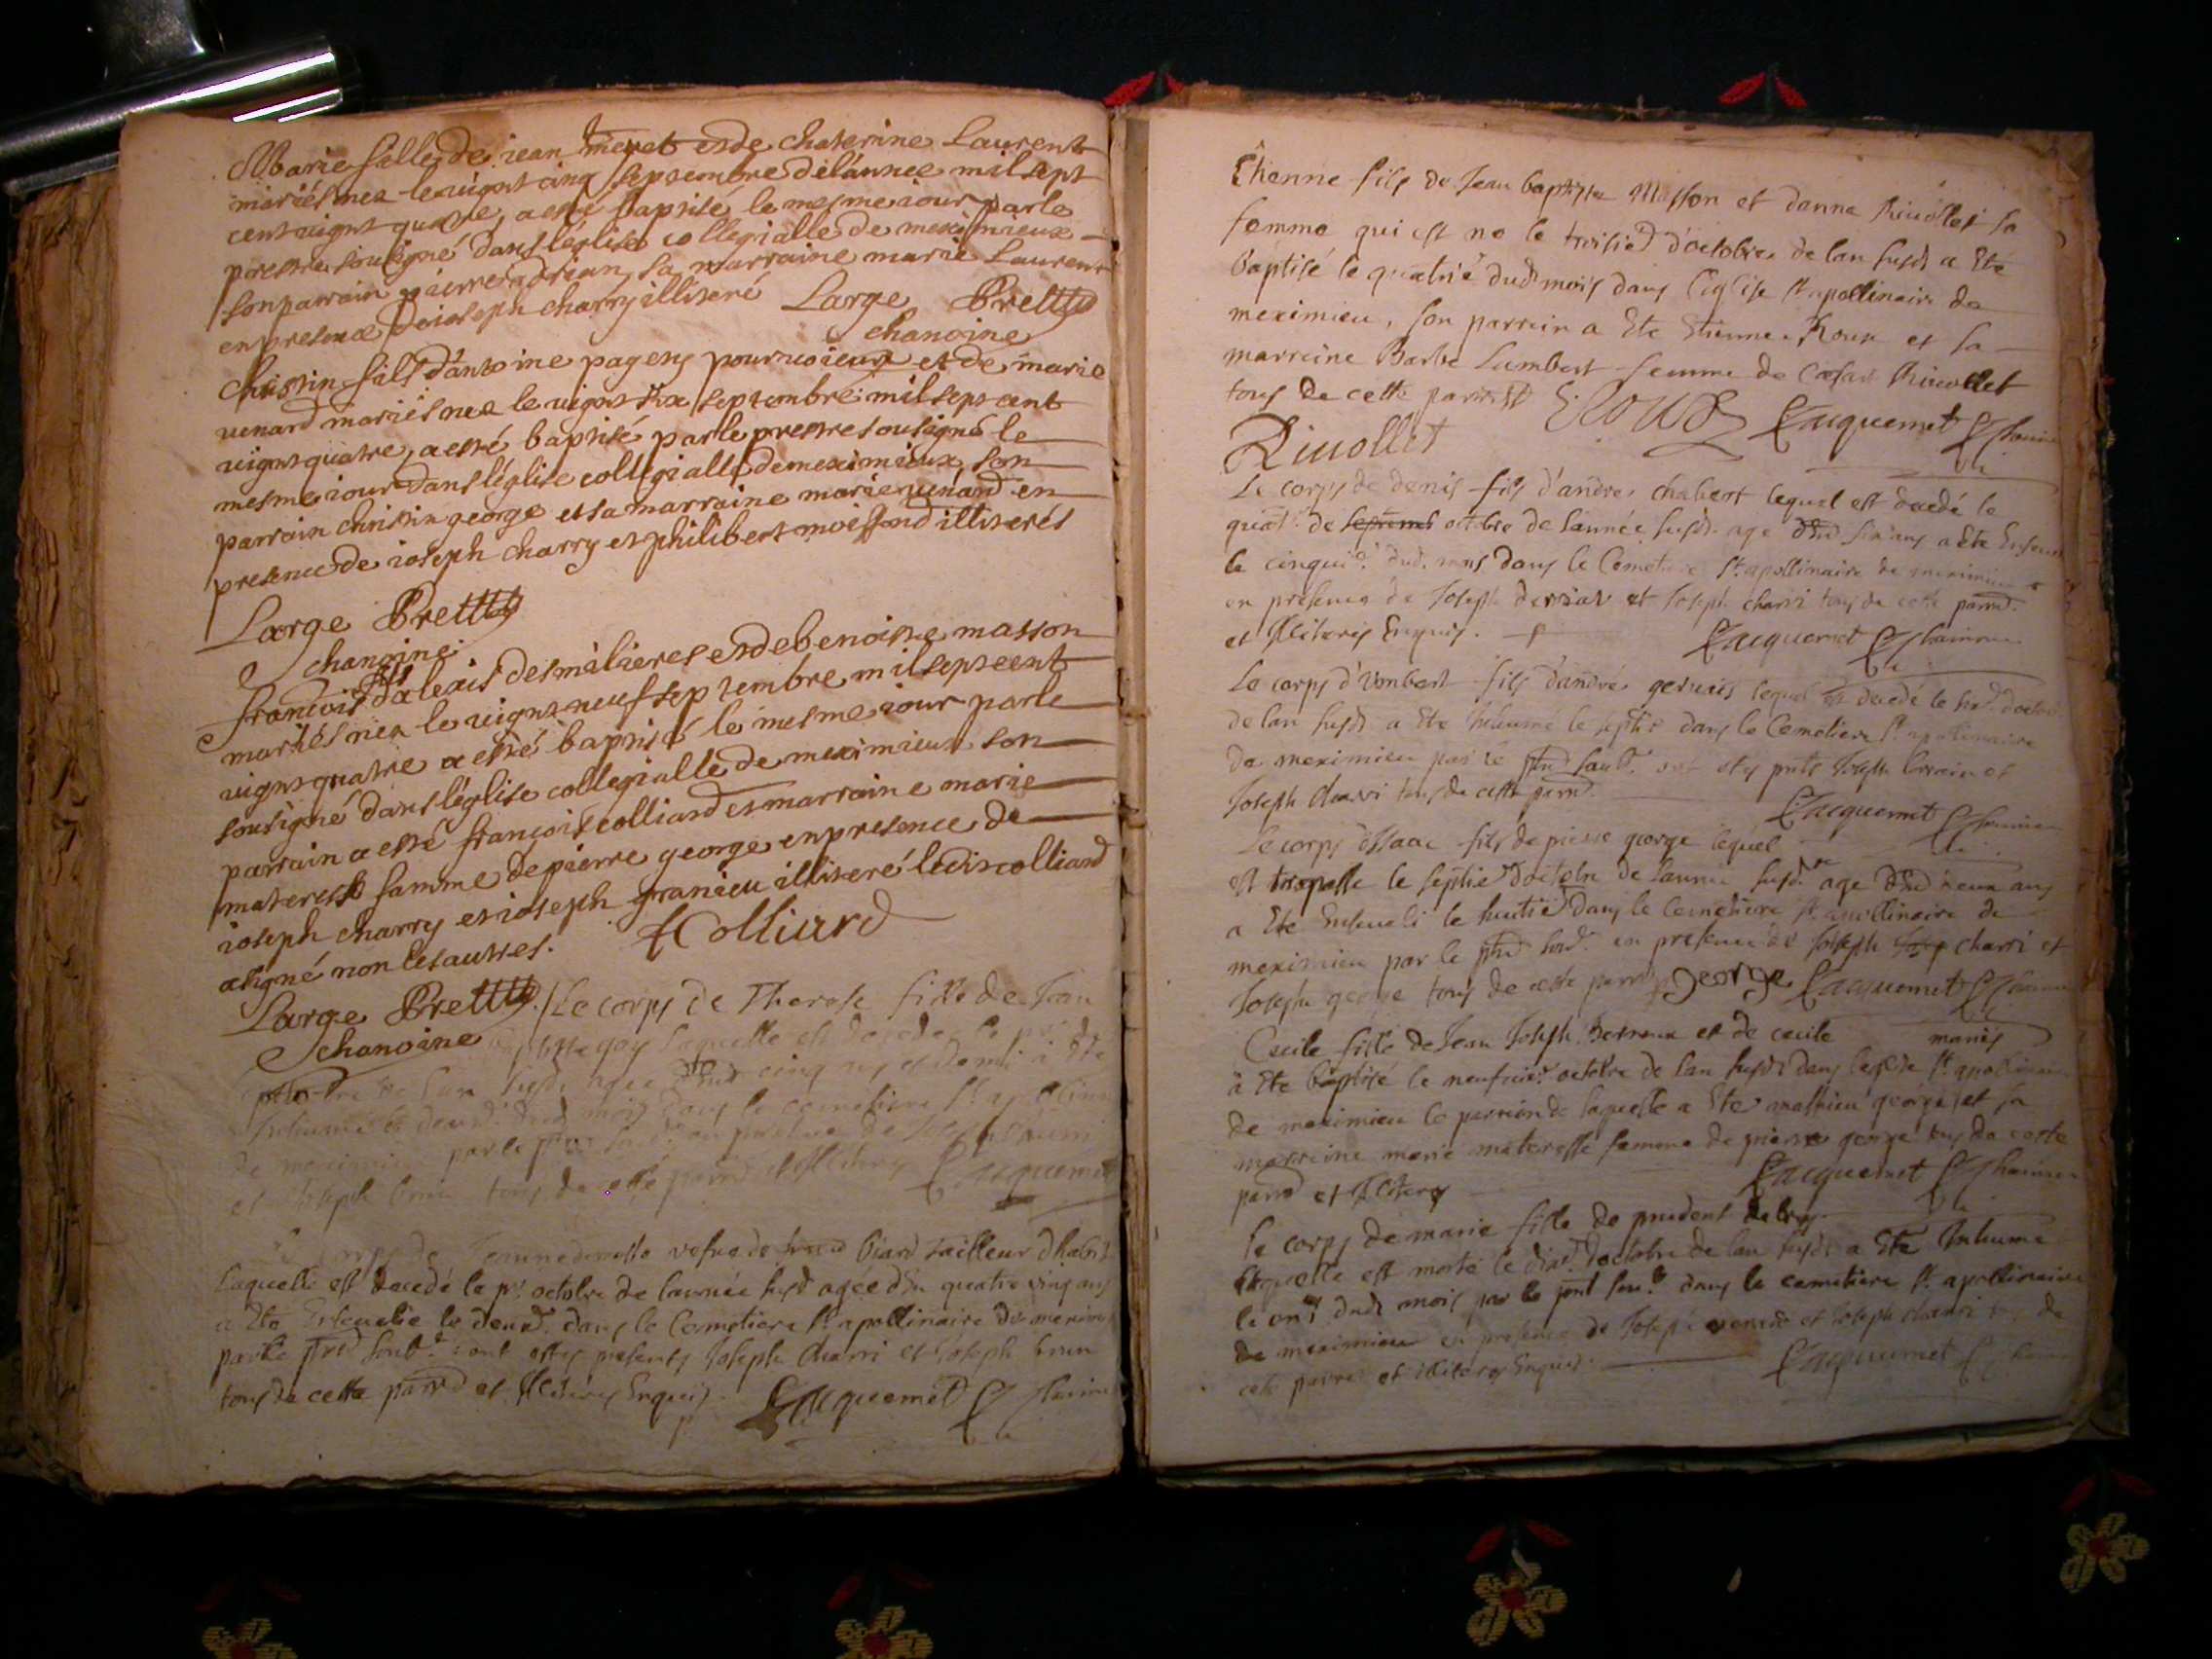 Marie fille de iean meyet et de chaterine Laurent
mariés nee le uignt cinq septembre de l'annee mil sept
cent uignt quatre, a esté baptisé le mesme iour par le
prestre sousigné dans l'églize collegialle de meximieux
son parrain pierre adrian sa marraine marie Laurent
en presence de ioseph charry illiteré Large Prettre
chanoine
Christin fils d'antoine pagens pouruoieur et de marie
uenard mariés nee le uignt six septembre mil sept cent
uignt quatre, a esté baptisé par le prestre sousigné le
mesme iour dans l'églize collegialle de meximieux son
parrain christin george et sa marraine marie uenard en
presence de ioseph charry et philibert moissond illiterés
Large Prettre
chanoine
françois fils d'alexis desmalieres et de benoiste masson
mariés nee le uignt neuf septembre mil sept cent
uignt quatre a esté baptisé le mesme iour par le
sousigné dans l'églize collegialle de meximieux son
parrain a esté françois colliard et marraine marie
materesse famme de pierre george en presence de
ioseph charry et ioseph granieu illiteré ledis colliard
a signé non les autres. f Colliard
Large Prettre. Le corps de Therese fille de Jean
chanoine laquelle est decedee le
de lan susd. agee cinq ans et demi a Ete
Inhumé le deux. dud mois dans le cemetiere St. apollinai
de meximieu par le en presence de Joseph
et Joseph brun tous de cette parr Jacquemet
vefue de biard tailleur dhabit
Laquelle est decedé le pr. octobre de l'année susd agee d'En quatre vingt ans
a Ete Enseuelie le deux. dans le Cemetiere St. apollinaire de meximi
par le ont estes presents Joseph charri et Joseph brun
tous de cette parr et Illiteres Enquis. Jacquemet Chanoine
Etienne fils de Jean baptiste Masson et danne Riuollet sa
femme qui est ne le troisie d'octobre de lan susd a Eté
baptisé le quatrie dud mois dans l'église St apollinaire de
meximieu, son parrain a Ete Etienne Roux et sa
marreine Barbe Lambert femme de Cæsar Riuollet
tous de cette parroisse E. Roux Jacquemet Chanoi
Riuollet
Le corps de denis fils d'andre chabert lequel est decedé le
quat. de septembre octobre de lannée susd. age d'End six ans a Ete Enseue
le cinquie. dud. mois dans le Cemetiere St. apollinaire de meximieu
en presence de Joseph et Joseph charri tous de cette parr.
et Illiteres Enquis. Jacquemet Chanoine
Le corps d'Vmbert fils d'andré geruais lequel est decedé le six. d'octo
de lan susd a Ete Inhumé le septie dans le Cemetiere St. apollinaire
de meximieu par le ont etes pnts Joseph et
Joseph charri tous de cette parr. Jacquemet Chanoine
Le corps d'Isaac fils de pierre george lequel
est trepasse le septie d'octobre de lannee susd. age d'End deux ans
a Ete Enseueli le huitie dans le Cemetiere St. apollinaire de
meximieu par le en presence de Joseph charri et
Joseph george tous de cette parr george Jacquemet Chanoi
Cecile fille de Jean Joseph et de cecile manis
a Ete baptisé le neufuie. octobre de lan susd dans leglise St. apollinai
de meximieu le parrein de laquelle a Ete mathieu george et sa
marreine marie materesse femme de pierre george tous de cette
parr et Illiteres Jacquemet Chanoine
le corps de marie fille de prudent
laquelle est morte le dix. d'octobre de lan susd a Ete Inhume
le onz. dud mois par le dans le cemetiere St. apollinaire
de meximieu en presence de Joseph uenard et Joseph charri tous de
cete parr et illiteres Enquis. Jacquemet Chanoi